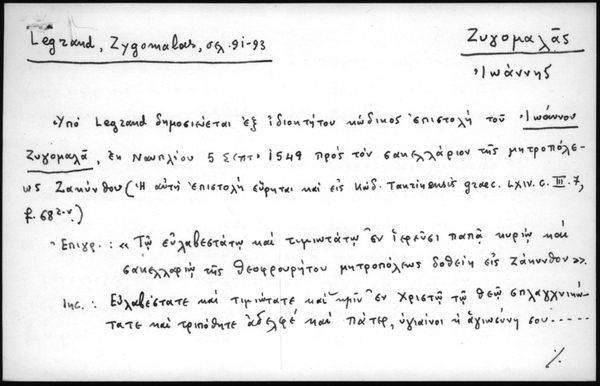 Legrand, Zygomalas, σελ. 91-93
Ζυγομαλᾶς
Ἰωάννης
Ὑπό Legrand δημοσιεύεται ἐξ ἰδιοκτήτου κώδικος ἐπιστολή τοῦ Ἰωάννου
Ζυγομαλᾶ, ἐκ Ναυπλίου 5 Σεπτ. 1549 πρός τόν σακελλάριον τῆς μητροπόλε-
ως Ζακύνθου (Ἡ αὐτή ἐπιστολή εὕρηται καί εἰς Κώδ. Taurinensis graec. LXIV. C. III. 7,
f. 68r-v.)
Ἐπιγρ.: «Τῷ εὐλαβεστάτῳ καί τιμιωτάτῳ ἐν ἱερεῦσι παπᾷ κυρίῳ καί
σακελλαρίῳ τῆς θεοφρουρήτου μητροπόλεως δοθείη εἰς Ζάκυνθον».
Inc.: Εὐλαβέστατε καί τιμιώτατε καί ἡμῖν ἐν Χριστῷ τῷ θεῷ σπλαγχνικώ-
τατε καί τριπόθητε ἀδελφέ καί πάτερ, ὑγιαίνοι ἡ ἁγιωσύνη σου.....
./.